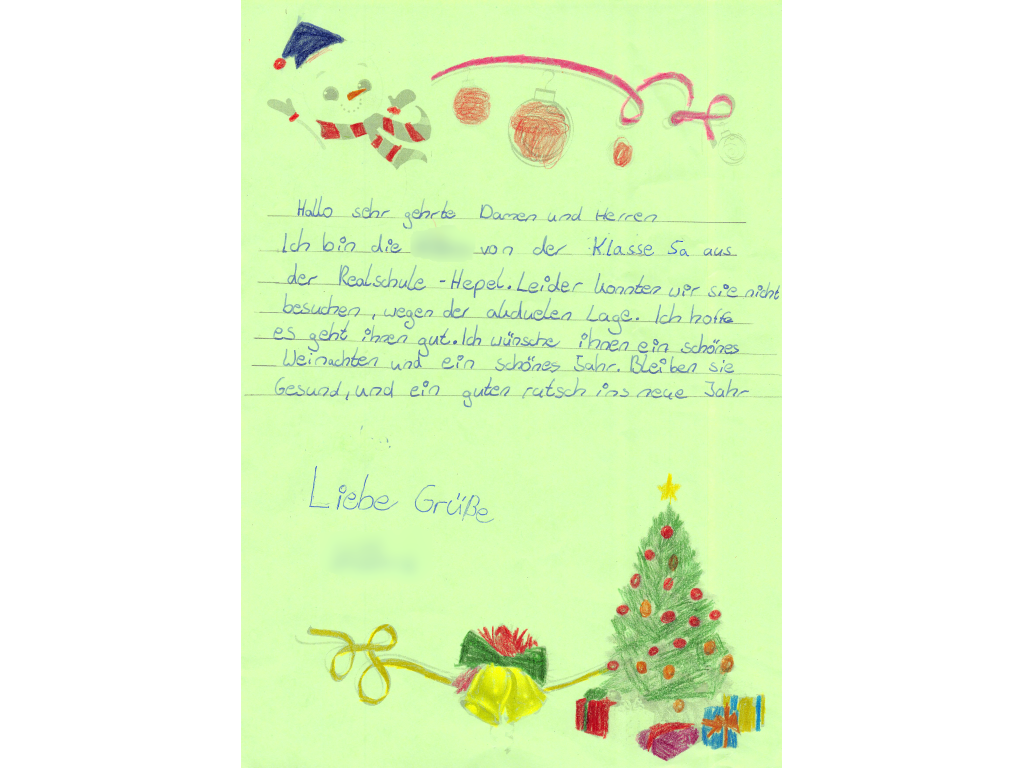 Hallo sehr gehrte Damen und Herren
Ich bin die von der Klasse 5a aus
der Realschule - Hepel. Leider konnten wir sie nicht
besuchen, wegen der akduelen Lage. Ich hoffe
es geht ihnen gut. Ich wünsche ihnen ein schönes
Weinachten und ein schönes Jahr. Bleiben sie
Gesund, und ein guten rutsch ins neue Jahr
Liebe Grüße